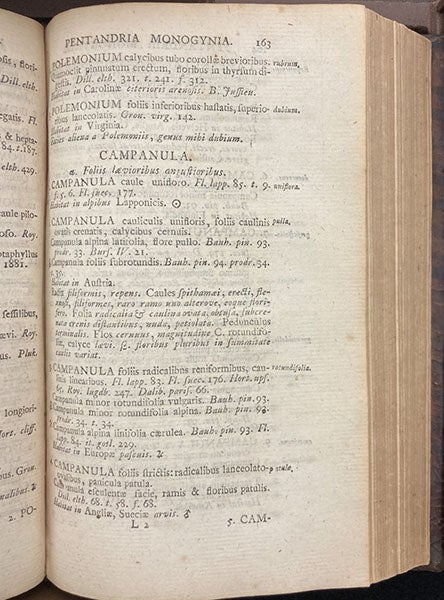 , flori-
Dill. elth.
& hepta-
84. t. 187.
elth. 429.
aule pilo-
oso. Roy.
otaphyllus
1881.
sessilibus,
ævi. Roy.
us. Pluk.
longiori-
ort. cliff.
ibus. Gron.
nalibus. ♄
2. PO-
PENTANDRIA MONOGYNIA. 163
POLEMONIUM calycibus tubo corollæ brevioribus. rubrum.
Quamoclit pinnatum erectum, floribus in thyrsum di-
gestis. Dill. elth. 321. t. 241. f. 312.
Habitat in Carolinæ citerioris arenosis. B. Jussieu.
POLEMONIUM foliis inferioribus hastatis, superio- dubium.
ribus lanceolatis. Gron. virg. 142.
Habitat in Virginia.
Facies aliena a Polemoniis, genus mihi dubium.
CAMPANULA.
Foliis lævioribus angustioribus.
CAMPANULA caule unifloro. Fl. lapp. 85. t. 9. uniflora.
f. 5. 6. Fl. suec. 177.
Habitat in alpibus Lapponicis. ☉
CAMPANULA cauliculis unifloris, foliis caulinis pulla.
ovatis crenatis, calycibus cernuis.
Campanula alpina latifolia, flore pullo. Bauh. pin. 93.
prodr. 33. Burs. IV. 21.
Campanula foliis subrotundis. Bauh. pin. 94. prodr. 34.
t. 35.
Habitat in Austria.
Radix filiformis, repens. Caules spithamæi, erecti, sim-
filiformes, raro ramo uno alterove, eoque flori-
Folia radicalia & caulina ovata, obtusa, subcre-
nata crenis distantibus, nuda, petiolata. Pedunculus
terminalis. Flos cernuus, magnitudine C. rotundifo-
liæ, calyce lævi. floribus pluribus in summitate
caulis variat.
3. CAMPANULA foliis radicalibus reniformibus, cau- rotundifolia.
linis linearibus. Fl. lapp. 83. Fl. suec. 176. Hort. ups.
Roy. lugdb. 247. Dalib. paris. 66.
Campanula minor rotundifolia vulgaris. Bauh. pin. 93.
Campanula minor rotundifolia alpina. Bauh. pin. 93.
prodr. 34. t. 34.
Campanula alpina linifolia cærulea. Bauh. pin. 93. Fl.
lapp. 84. it. gotl. 229.
Habitat in Europæ pascuis. ♃
4. CAMPANULA foliis strictis: radicalibus lanceolato- patula.
ovalibus, panicula patula.
Campanula esculentæ facie, ramis & floribus patulis.
Dill. elth. 68. t. 58. f. 68.
Habitat in Angliæ, Sueciæ arvis. ♂
L 2 5. CAM-